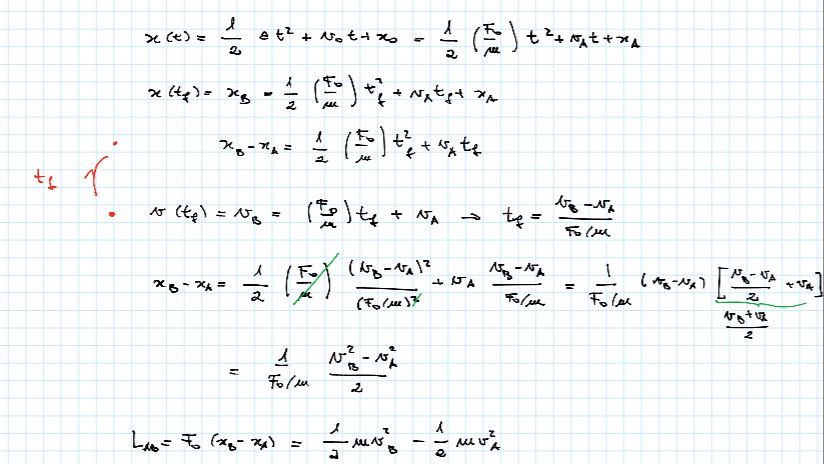 x(t) = 1/2 a t² + v₀ t + x₀ = 1/2 (F₀/m) t² + v_A t + x_A
x(t_f) = x_B = 1/2 (F₀/m) t_f² + v_A t_f + x_A
x_B - x_A = 1/2 (F₀/m) t_f² + v_A t_f
t_f
v(t_f) = v_B = (F₀/m) t_f + v_A → t_f = (v_B - v_A)/(F₀/m)
x_B - x_A = 1/2 (F₀/m) (v_B - v_A)²/(F₀/m)² + v_A (v_B - v_A)/(F₀/m) = 1/(F₀/m) (v_B - v_A) [(v_B - v_A)/2 + v_A]
(v_B + v_A)/2
= 1/(F₀/m) (v_B² - v_A²)/2
L_AB = F₀ (x_B - x_A) = 1/2 m v_B² - 1/2 m v_A²